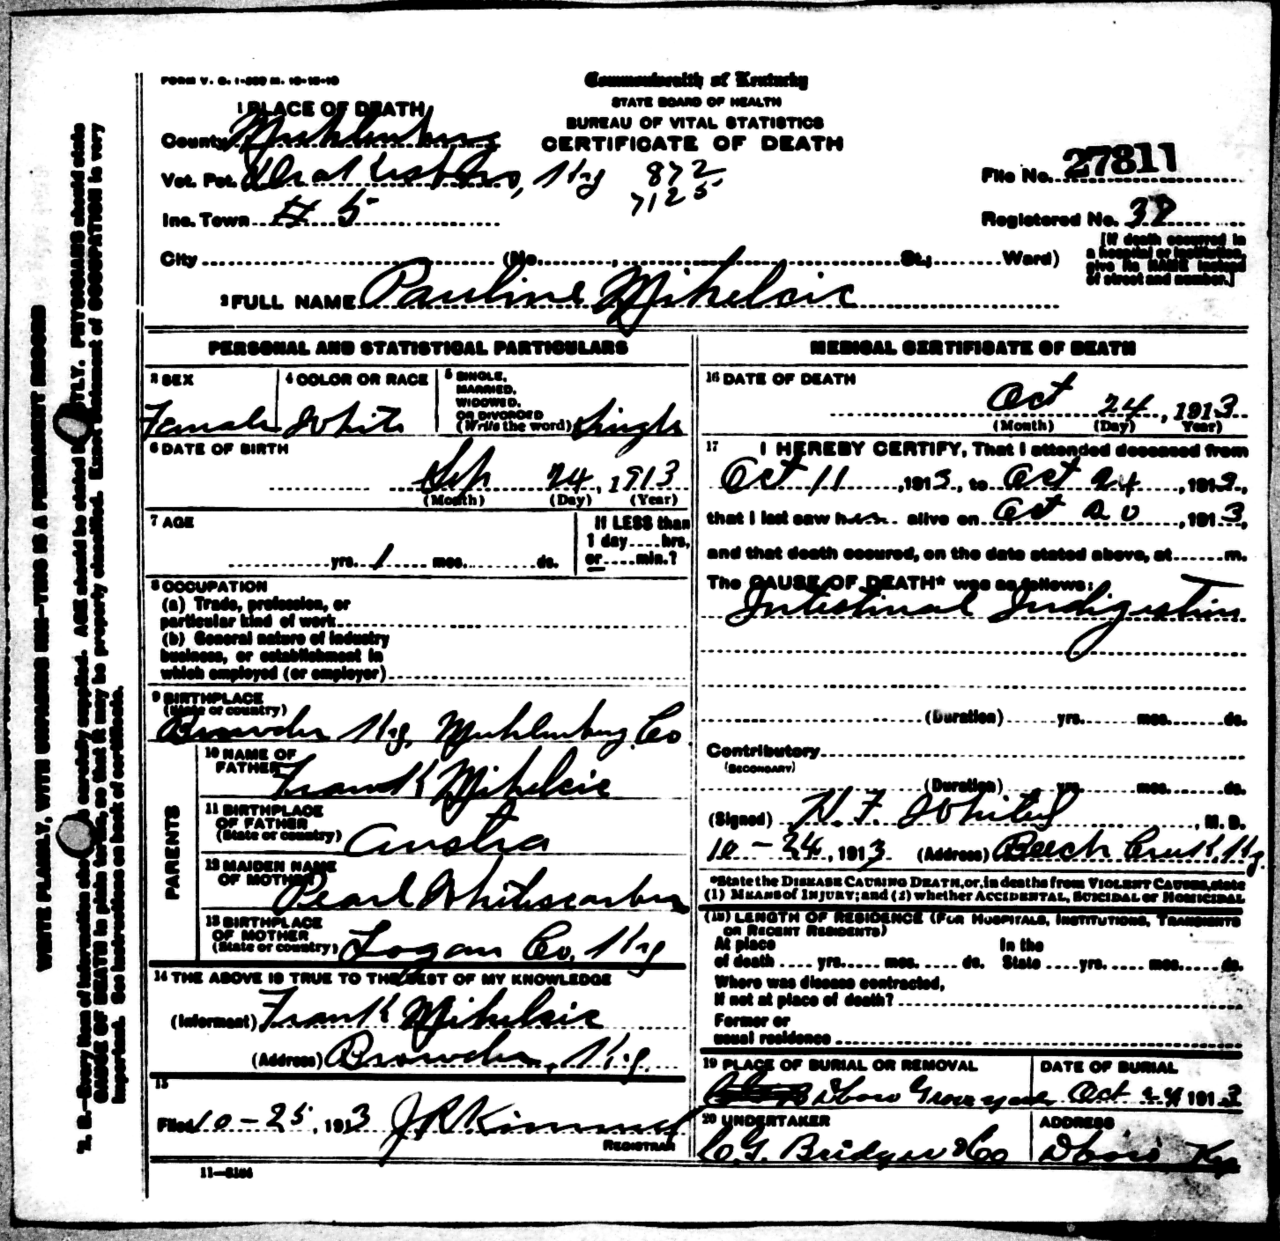 FORM V. S. 1-
Commonwealth of Kentucky
STATE BOARD OF HEALTH
BUREAU OF VITAL STATISTICS
CERTIFICATE OF DEATH
1 PLACE OF DEATH
County Muhlenburg
Vot. Pct. Drakesboro, Ky 872
7125
Inc. Town # 5
City (No. , St.; Ward)
File No. 27811
Registered No.
[If death occurred in
a hospital or institution,
give its NAME instead
of street and number.]
2 FULL NAME Pauline Mikelcic
PERSONAL AND STATISTICAL PARTICULARS
3 SEX
Female
4 COLOR OR RACE
White
5 SINGLE,
MARRIED,
WIDOWED,
OR DIVORCED
(Write the word) Single
6 DATE OF BIRTH
Sep 24, 1913
(Month) (Day) (Year)
7 AGE
yrs. 1 mos. ds.
If LESS than
1 day hrs.
or min.?
8 OCCUPATION
(a) Trade, profession, or
particular kind of work
(b) General nature of industry
business, or establishment in
which employed (or employer)
9 BIRTHPLACE
(State or country)
Browder Ky, Muhlenburg Co
PARENTS
10 NAME OF
FATHER Frank Mikelcic
11 BIRTHPLACE
OF FATHER
(State or country) Austra
12 MAIDEN NAME
OF MOTHER Pearl
13 BIRTHPLACE
OF MOTHER
(State or country) Logan Co, Ky
14 THE ABOVE IS TRUE TO THE BEST OF MY KNOWLEDGE
(Informant) Frank Mikelcic
(Address) Browder, Ky
15
Filed 10-25, 1913 J R Kimmel
REGISTRAR
11-3184
MEDICAL CERTIFICATE OF DEATH
16 DATE OF DEATH
Oct 24, 1913
(Month) (Day) (Year)
17 I HEREBY CERTIFY, That I attended deceased from
Oct 11, 1913, to Oct 24, 1913,
that I last saw her alive on Oct 20, 1913,
and that death occured, on the date stated above, at m.
The CAUSE OF DEATH* was as follows:
Intestinal Indigestion
(Duration) yrs. mos. ds.
Contributory
(SECONDARY)
(Duration) yrs. mos. ds.
(Signed) H. F. , M. D.
10-24, 1913 (Address) Beech Creek, Ky.
*State the DISEASE CAUSING DEATH, or, in deaths from VIOLENT CAUSES, state
(1) MEANS OF INJURY; and (2) whether ACCIDENTAL, SUICIDAL or HOMICIDAL
(18) LENGTH OF RESIDENCE (FOR HOSPITALS, INSTITUTIONS, TRANSIENTS
OR RECENT RESIDENTS)
At place In the
of death yrs. mos. ds. State yrs. mos. ds.
Where was disease contracted,
If not at place of death?
Former or
usual residence
19 PLACE OF BURIAL OR REMOVAL
Dboro Graveyard
DATE OF BURIAL
Oct 24 1913
20 UNDERTAKER
C. G. Bridges & Co
ADDRESS
Dboro Ky
WRITE PLAINLY, WITH UNFADING INK—THIS IS A PERMANENT RECORD
N. B.—Every item of information should be carefully supplied. AGE should be stated EXACTLY. PHYSICIANS should state
CAUSE OF DEATH in plain terms, so that it may be properly classified. Exact statement of OCCUPATION is very
important. See instructions on back of certificate.